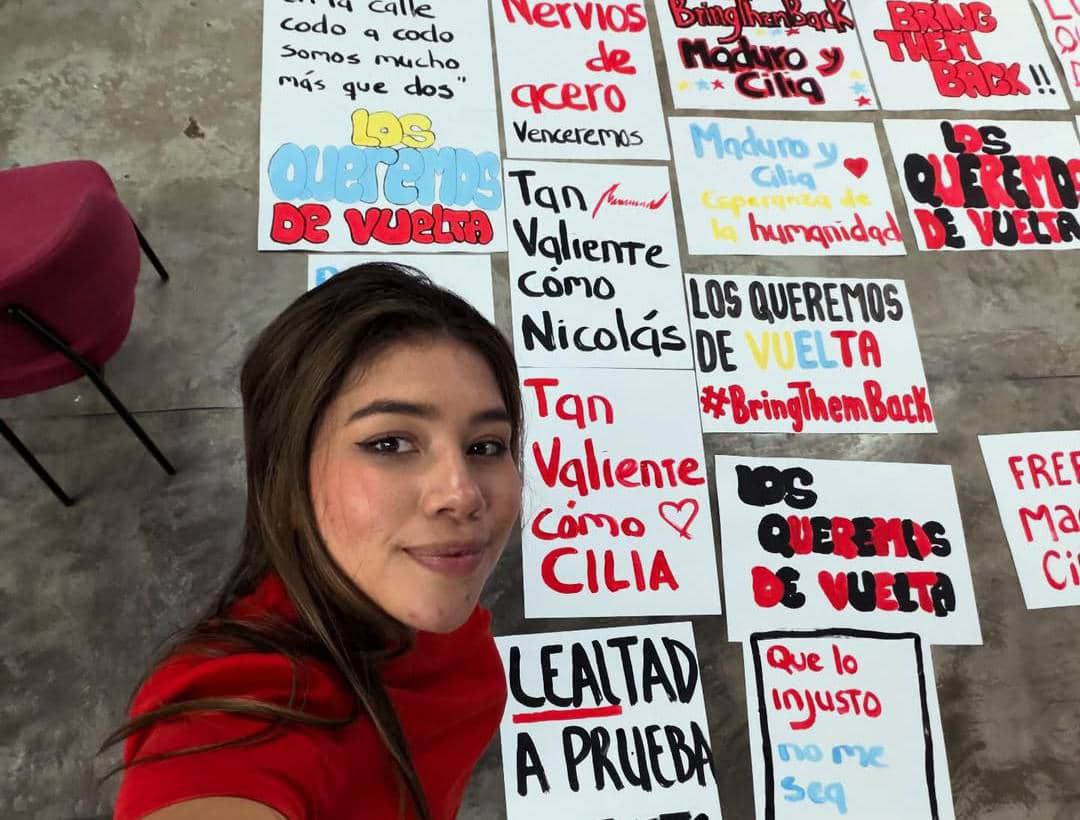 en la calle
codo a codo
somos mucho
más que dos"
LOS
QUEREMOS
DE VUELTA
Nervios
de
acero
Venceremos
BringThemBack
Maduro y
Cilia
BRING
THEM
BACK!!
Tan
Valiente
cómo
Nicolás
Maduro y
Cilia
Esperanza de
la humanidad
LOS
QUEREMOS
DE VUELTA
LOS QUEREMOS
DE VUELTA
#BringThemBack
Tan
Valiente
cómo
CILIA
LOS
QUEREMOS
DE VUELTA
FREE
LEALTAD
A PRUEBA
Que lo
injusto
no me
sea